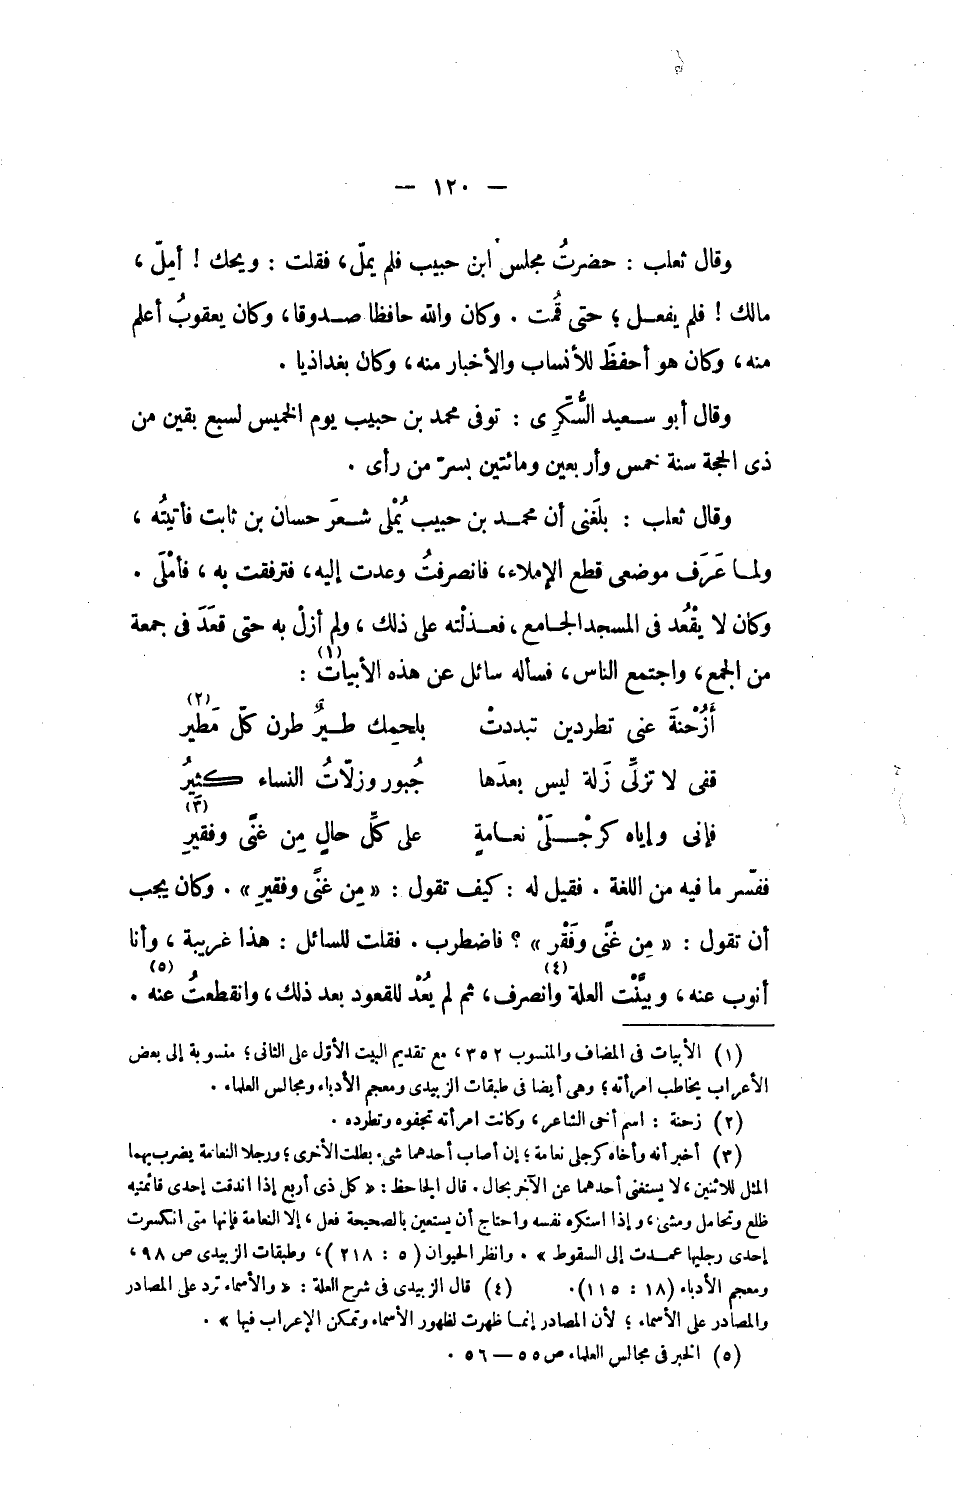 — ١٢٠ —
وقال ثعلب : حضرتُ مجلس ابن حبيب فلم يملّ، فقلت : ويحك ! أملّ ،
مالك ! فلم يفعل ؛ حتى قُمت . وكان والله حافظا صدوقا، وكان يعقوبُ أعلم
منه، وكان هو أحفظَ للأنساب والأخبار منه، وكان بغداذيا .
وقال أبو سعيد السُّكّرِى : توفى محمد بن حبيب يوم الخميس لسبع بقين من
ذى الحجة سنة خمس وأربعين ومائتين بسرّ من رأى .
وقال ثعلب : بلَغنى أن محمد بن حبيب يُمْلى شعرَ حسان بن ثابت فأتيتُه ،
ولما عَرَف موضعى قطع الإملاء، فانصرفتُ وعدت إليه، فترفقت به ، فأمْلَى .
وكان لا يقْعُد فى المسجد الجامع، فعذلْته على ذلك ، ولم أزلْ به حتى قعَدَ فى جمعة
من الجمع، واجتمع الناس، فسأله سائل عن هذه الأبيات (١) :
أَزُحْنةَ عنى تطردين تبددتْ بلحمك طيرٌ طرن كلّ مَطير (٢)
قفى لا تزلِّى زَلة ليس بعدَها جُبور وزلّاتُ النساء كثيرُ
فإنى وإياه كرجْلَىْ نعامةٍ على كلِّ حالٍ مِن غنًى وفقيرِ (٣)
ففسّر ما فيه من اللغة . فقيل له : كيف تقول : « مِن غنًى وفقيرِ » . وكان يجب
أن تقول : « مِن غنًى وفَقْر » ؟ فاضطرب . فقلت للسائل : هذا غريبة ، وأنا
أنوب عنه، وبيَّنْت العلة (٤) وانصرف، ثم لم يعُدْ للقعود بعد ذلك، وانقطعتُ عنه (٥) .
(١) الأبيات فى المضاف والمنسوب ٣٥٢، مع تقديم البيت الأوّل على الثانى؛ منسوبة إلى بعض
الأعراب يخاطب امرأته؛ وهى أيضا فى طبقات الزبيدى ومعجم الأدباء ومجالس العلماء .
(٢) زحنة : اسم أخى الشاعر، وكانت امرأته تجفوه وتطرده .
(٣) أخبر أنه وأخاه كرجلى نعامة ؛ إن أصاب أحدهما شىء بطلت الأخرى؛ ورجلا النعامة يضرب بهما
المثل للاثنين، لا يستغنى أحدهما عن الآخر بحال . قال الجاحظ : « كل ذى أربع إذا اندقت إحدى قائمتيه
ظلع وتحامل ومشى، وإذا استكره نفسه واحتاج أن يستعين بالصحيحة فعل ، إلا النعامة فإنها متى انكسرت
إحدى رجليها عمدت إلى السقوط » . وانظر الحيوان (٥ : ٢١٨)، وطبقات الزبيدى ص ٩٨،
ومعجم الأدباء (١٨ : ١١٥). (٤) قال الزبيدى فى شرح العلة : « والأسماء ترد على المصادر
والمصادر على الأسماء ؛ لأن المصادر إنما ظهرت لظهور الأسماء وتمكن الإعراب فيها » .
(٥) الخبر فى مجالس العلماء ص ٥٥ — ٥٦ .